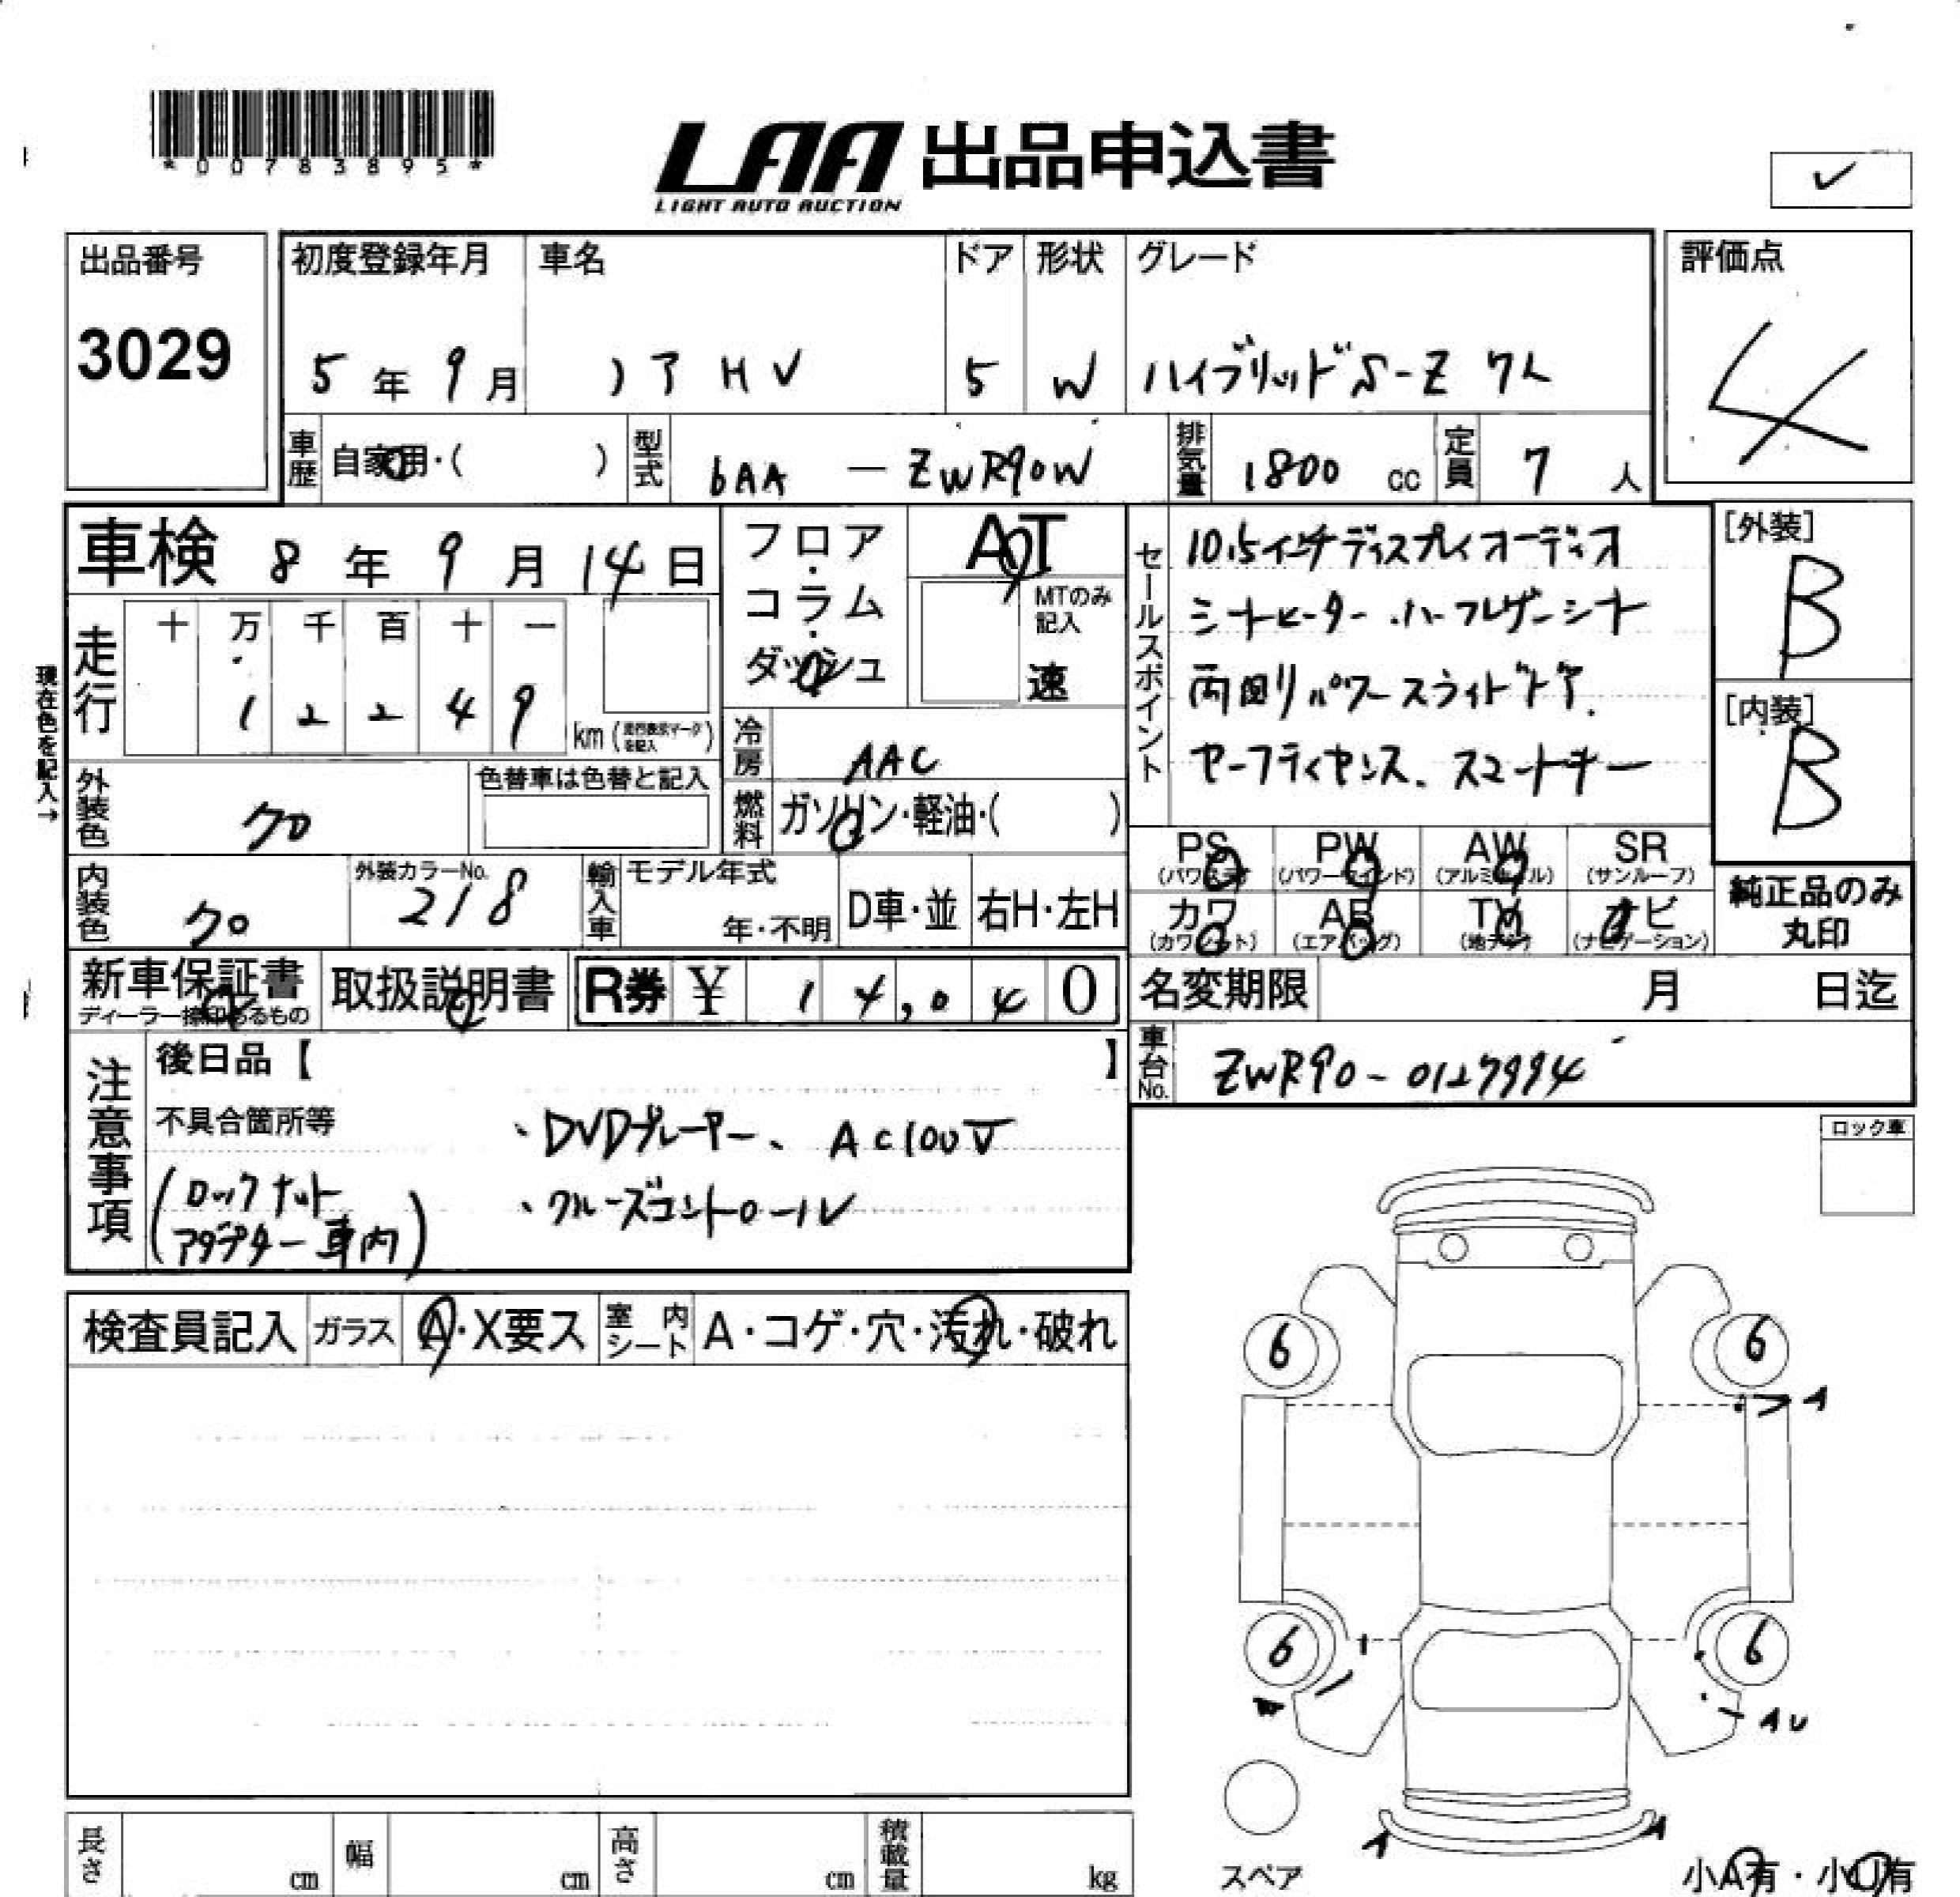 *00783895*
LAA 出品申込書
LIGHT AUTO AUCTION
✓
出品番号
3029
初度登録年月
5年9月
車名
ノア HV
ドア
5
形状
W
グレード
ハイブリッドS-Z 7人
評価点
4
車歴
自家用・( )
型式
6AA - ZWR90W
排気量
1800 cc
定員
7人
車検 8年9月14日
フロア・コラム・ダッシュ
AT
MTのみ記入
速
セールスポイント
10.5インチディスプレイオーディオ
シートヒーター・ハーフレザーシート
両側パワースライドドア.
セーフティセンス. スマートキー
[外装]
B
[内装]
B
現在色を記入→
走行
十 万 千 百 十 一
1 2 2 4 9
km (走行表示マークを記入)
冷房
AAC
外装色
クロ
色替車は色替と記入
燃料
ガソリン・軽油・( )
PS (パワステ)
PW (パワーウインド)
AW (アルミホイル)
SR (サンルーフ)
内装色
クロ
外装カラーNo.
218
輸入車
モデル年式
年・不明
D車・並
右H・左H
カワ (カワシート)
AB (エアバッグ)
TV (地デジ)
ナビ (ナビゲーション)
純正品のみ丸印
新車保証書
ディーラー捺印あるもの
取扱説明書
R券 ¥ 14,040
名変期限 月 日迄
車台No.
ZWR90-0127994
注意事項
後日品【 】
不具合箇所等
・DVDプレーヤー、AC100V
・クルーズコントロール
(ロックナット
アダプター車内)
ロック車
検査員記入
ガラス
A・X要ス
室内シート
A・コゲ・穴・汚れ・破れ
6
6
A
6
6
AU
A
A
スペア
小A有・小U有
長さ cm
幅 cm
高さ cm
積載量 kg